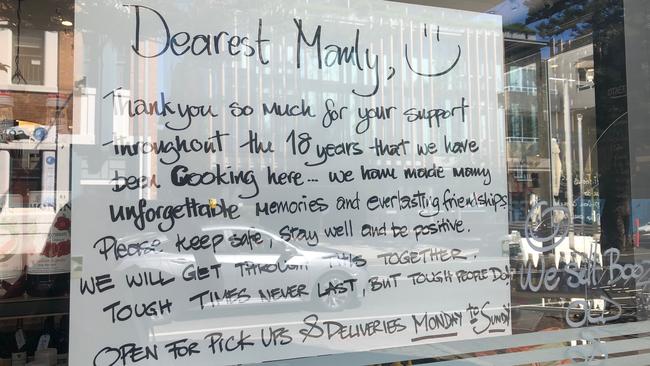 Dearest Manly,
Thank you so much for your support
throughout the 18 years that we have
been Cooking here... we have made many
unforgettable memories and everlasting friendships
Please keep safe, stay well and be positive.
WE WILL GET THROUGH THIS TOGETHER.
TOUGH TIMES NEVER LAST, BUT TOUGH PEOPLE DO!
OPEN FOR PICK UPS & DELIVERIES MONDAY to SUNDAY
We sell